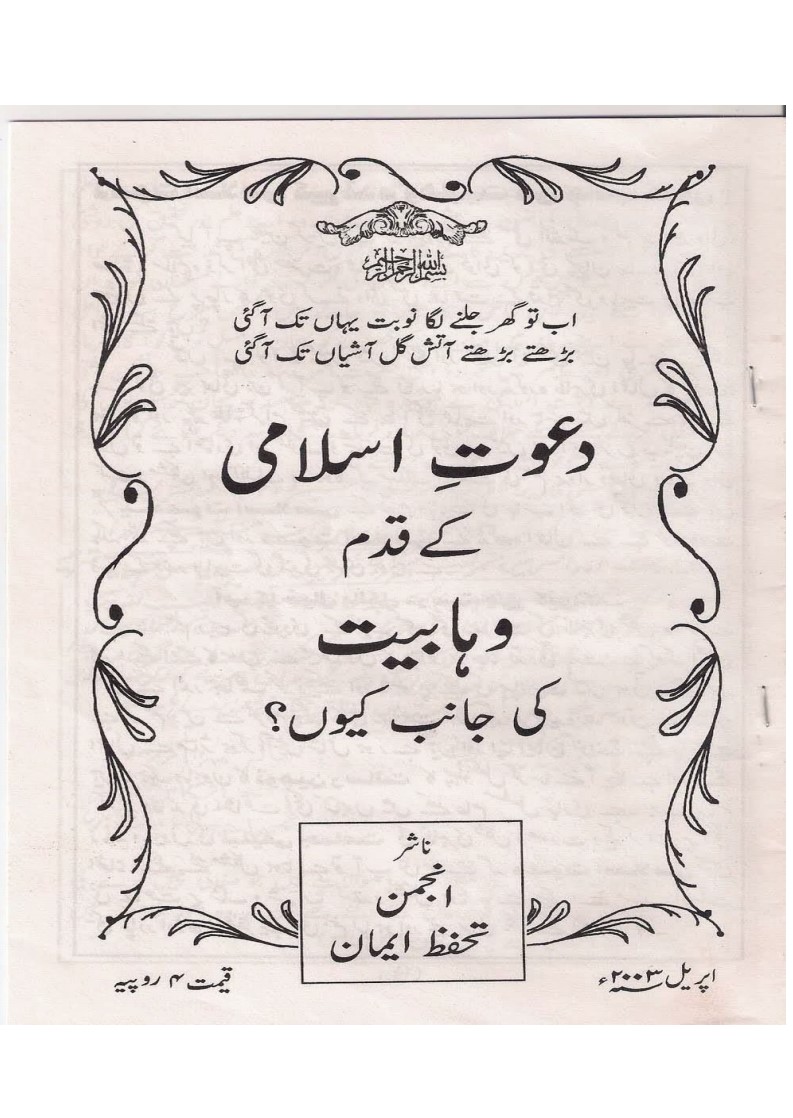 بسم اللہ الرحمن الرحیم
اب تو گھر جلنے لگا نوبت یہاں تک آگئی
بڑھتے بڑھتے آتش گل آشیاں تک آگئی
دعوتِ اسلامی
کے قدم
وہابیت
کی جانب کیوں؟
ناشر
انجمن
تحفظ ایمان
اپریل ۲۰۰۳ء
قیمت ۴ روپیہ